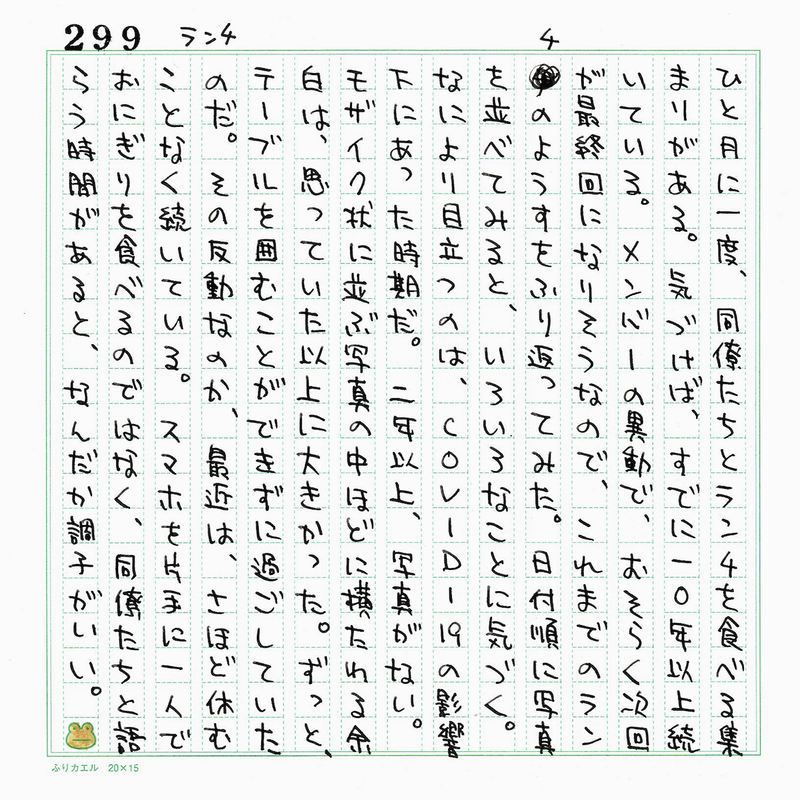 299 ランチ
ひと月に一度、同僚たちとランチを食べる集
まりがある。気づけば、すでに一〇年以上続
いている。メンバーの異動で、おそらく次回
が最終回になりそうなので、これまでのラン
チのようすをふり返ってみた。日付順に写真
を並べてみると、いろいろなことに気づく。
なにより目立つのは、COVID-19の影響
下にあった時期だ。二年以上、写真がない。
モザイク状に並ぶ写真の中ほどに横たわる余
白は、思っていた以上に大きかった。ずっと、
テーブルを囲むことができずに過ごしていた
のだ。その反動なのか、最近は、さほど休む
ことなく続いている。スマホを片手に一人で
おにぎりを食べるのではなく、同僚たちと語
らう時間があると、なんだか調子がいい。
ふりカエル 20×15